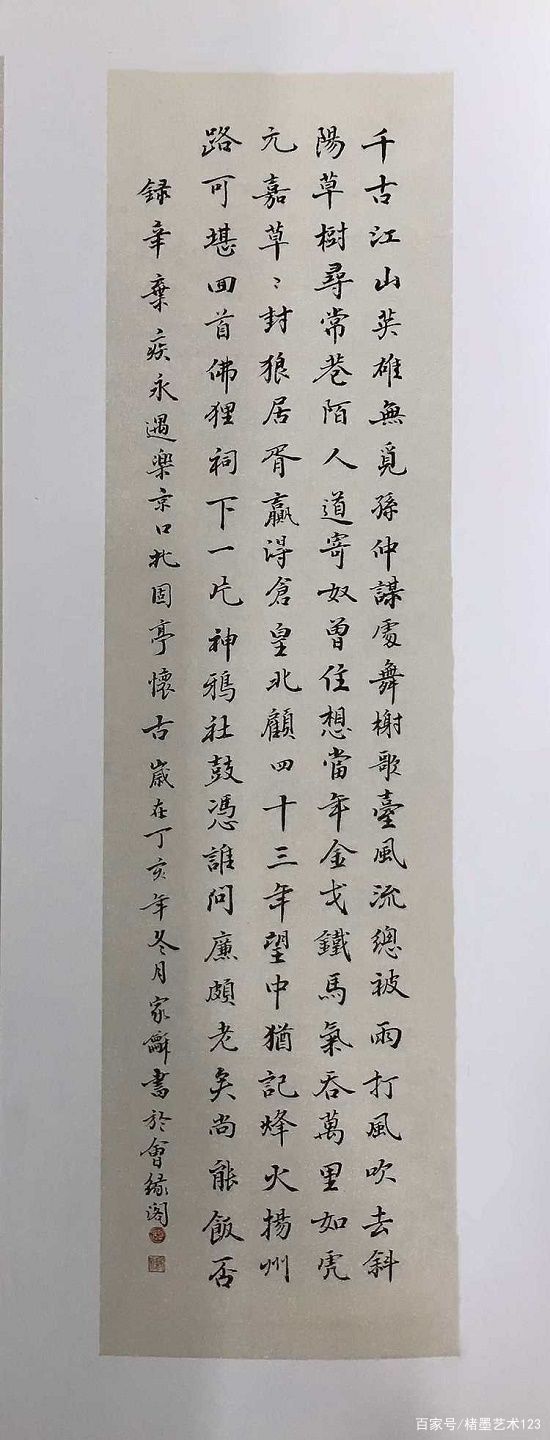 千古江山英雄無覓孫仲謀處舞榭歌臺風流總被雨打風吹去斜
陽草樹尋常巷陌人道寄奴曾住想當年金戈鐵馬氣吞萬里如虎
元嘉草〻封狼居胥贏得倉皇北顧四十三年望中猶記烽火揚州
路可堪回首佛狸祠下一片神鴉社鼓憑誰問廉頗老矣尚能飯否
録辛棄疾永遇樂京口北固亭懷古歲在丁亥年冬月家龢書於會緣閣
百家号/楮墨艺术123